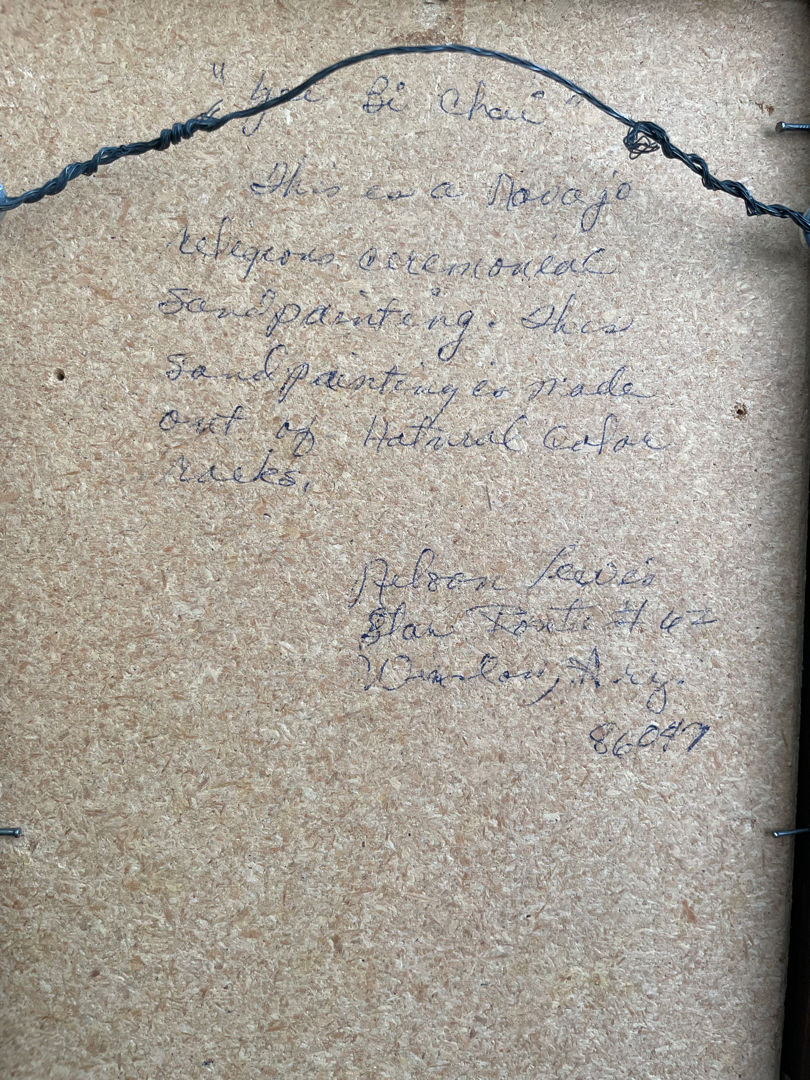 "Yei Bi Chai"
This is a Navajo
religious ceremonial
Sandpainting. This
Sandpainting is made
out of Natural Color
racks.
Nelson Lewis
Star Route # 62
Winslow, Ariz.
86047